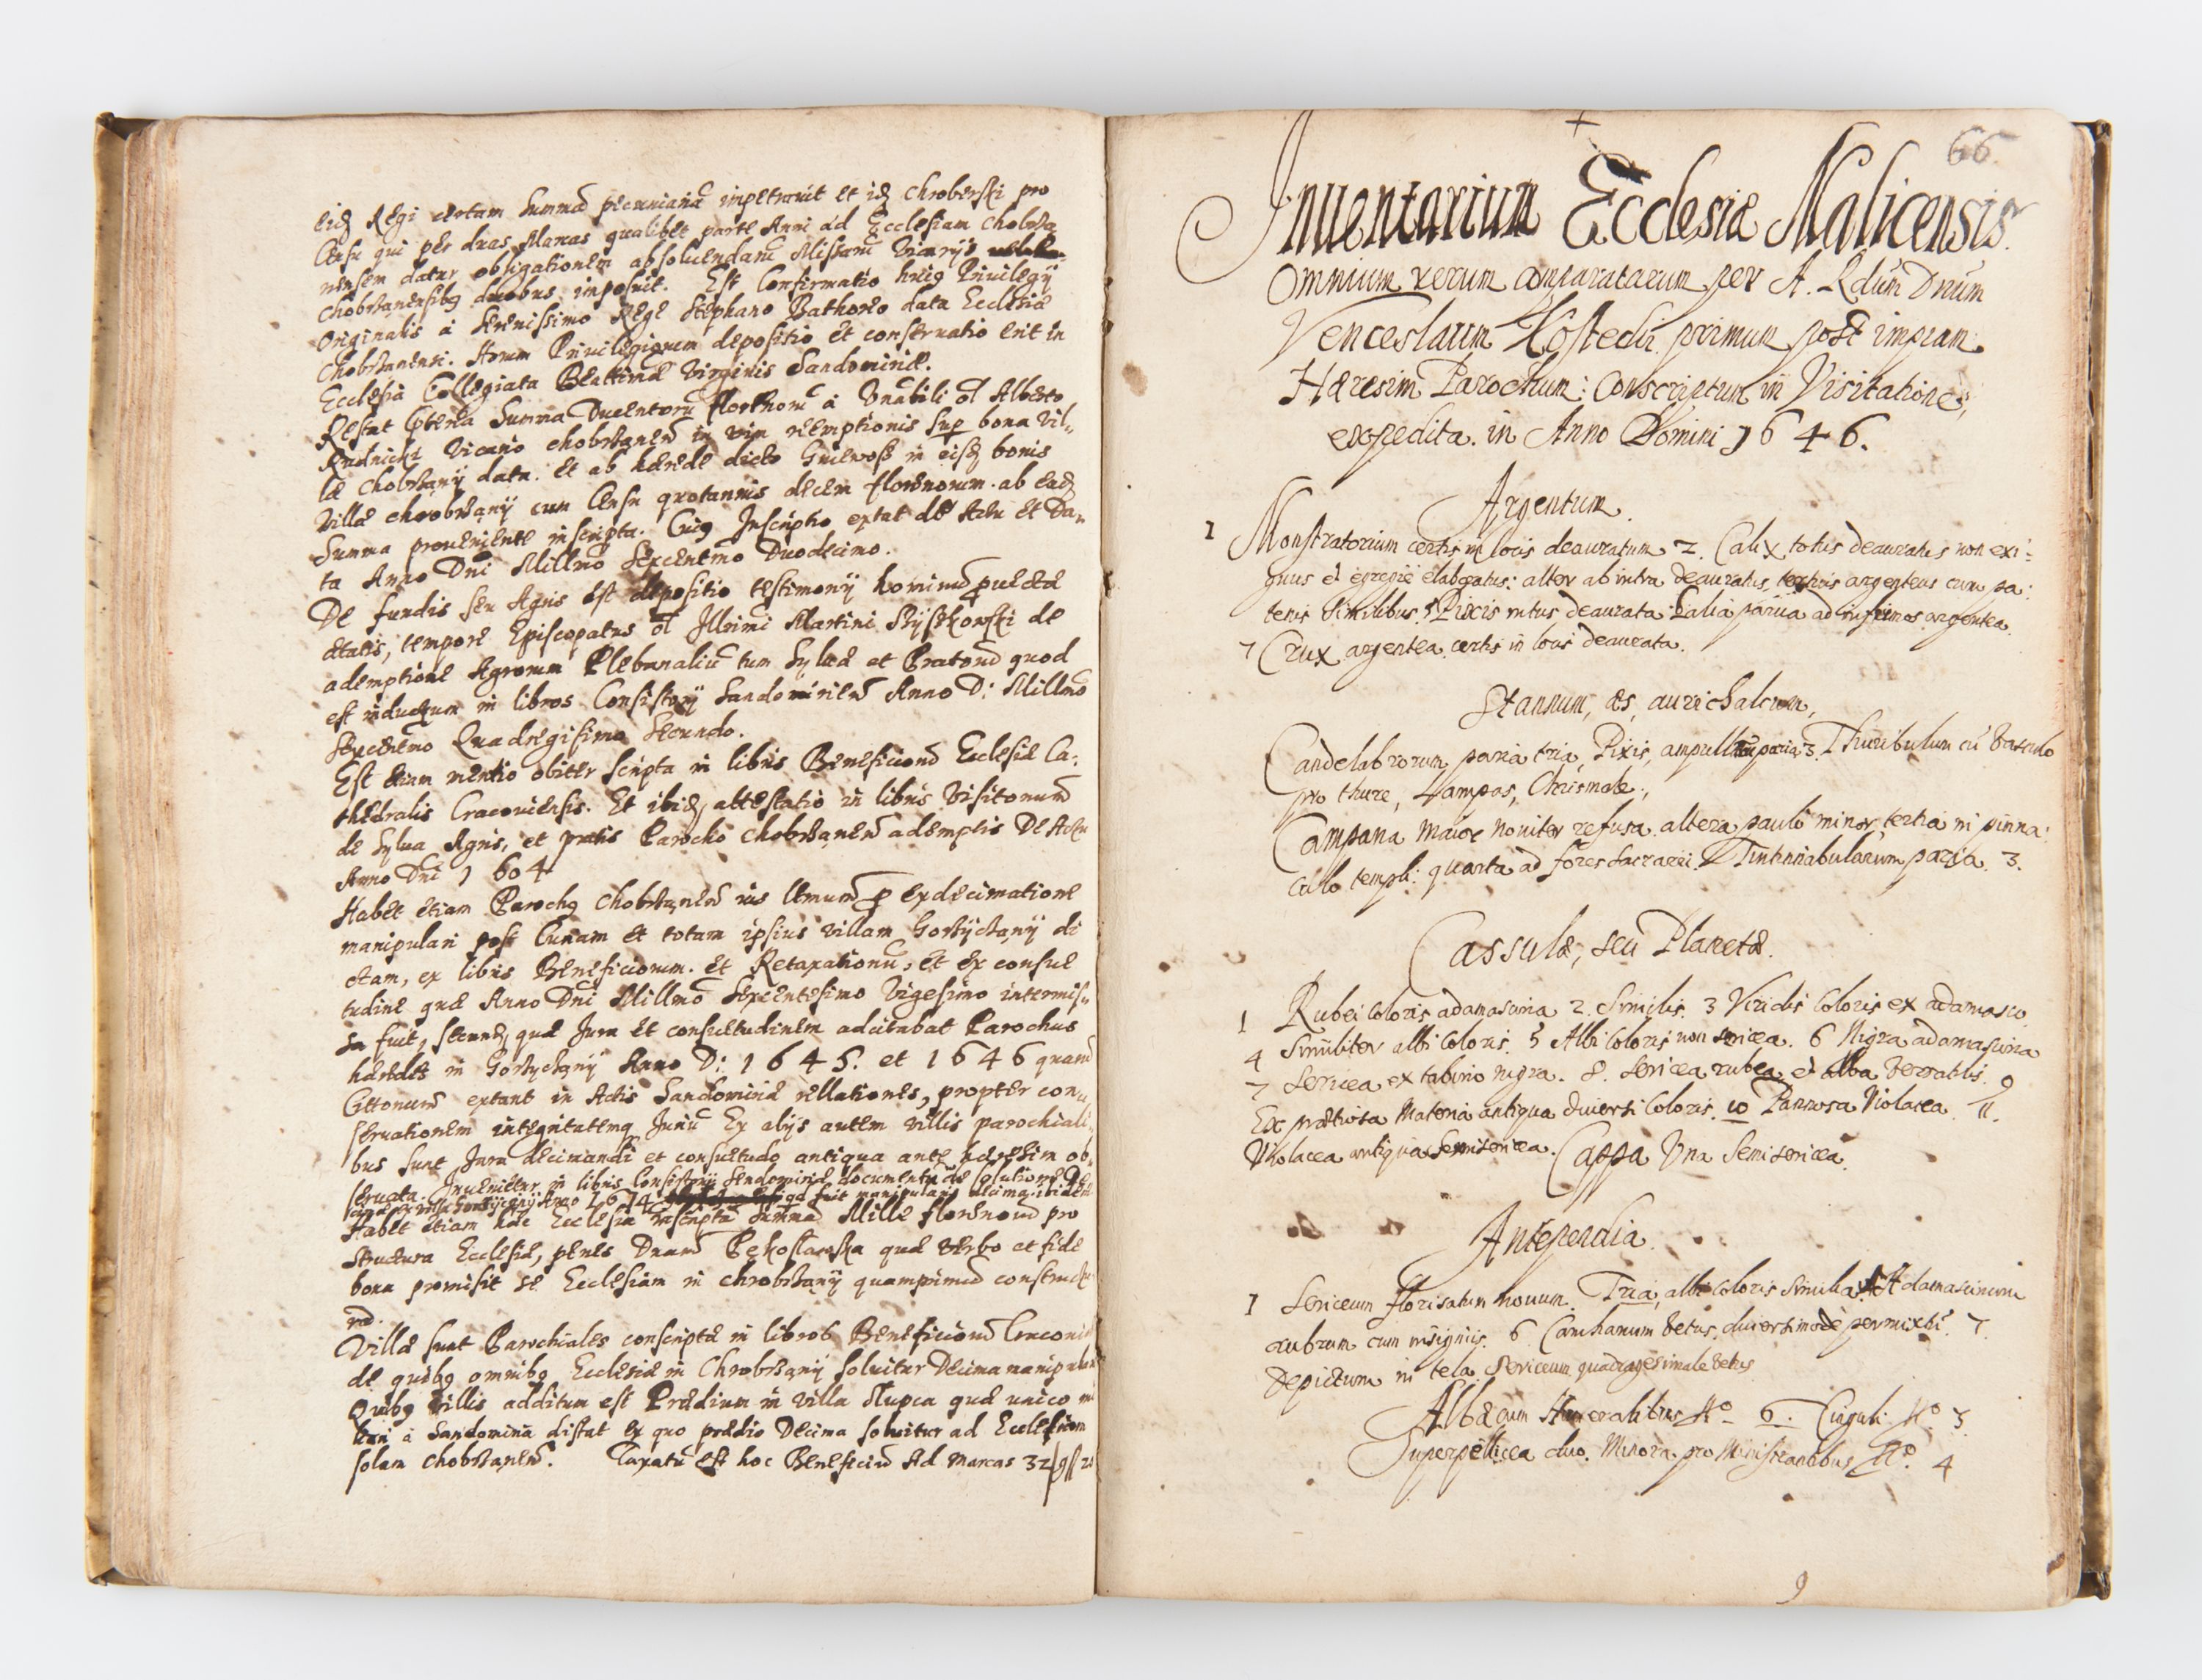 eid Regi certam Summa pecuniaria impetravit et id Chroberski pro
Censu qui per duas Marcas qualibet parte Anni ad Ecclesiam Chobrza
nensem datur obligationem absoluendaru Missaru Vicarijs
Chobrzanensibq duobus imposuit. Est Confirmatio huiq Priuilegij
Originalis a Serenissimo Rege Stephano Bathoreo data Ecclesiæ
Chobrzanensi. Horum Priuilegiorum depositio et conseruatio erit in
Ecclesia Collegiata Beattimæ Virginis Sandomiriæ.
Restat Summa Ducentoru florenoru a Vnabili ol Alberto
Rudnicki Vicario chobrzanen in vim reemptionis sup bona Vil„
læ Chobrzany data. et ab hærede dicto Gniewosz in eisd bonis
Villæ chrobrzany cum Censu quotannis decem florenorum ab ead
Summa proueniente inscripta. Cuiq Inscriptio extat de Actu et Da„
ta Anno Dni Millmo Sexcentmo Duodecimo.
De fundis seu Agris est depositio testimonij hominu
ætatis, tempore Episcopatus ol Illrimi Martini Szyszkowski de
ademptione Agrorum Plebanaliu tum Syluæ et Pratoru quod
est inductum in libros Consistorij Sandomirien Anno D: Millmo
Sexcentmo Quadregisimo Secundo.
Est etiam mentio obiter scripta in libris Beneficioru Ecclesiæ Ca:
thedralis Cracouiensis. Et ibid, attestatio in libris Visitonum
de Sylua Agris, et pratis Parocho chobrzanen ademptis De Actu
Anno Dni 1604
Habet etiam Parochq chobrzanen ius expdecimatione
manipulari post Cunam et totam ipsius villam Gorzyczany di
ctam, ex libris Beneficiorum. et Retaxationu, et ex consue
tudine quæ Anno Dni Millmo Sexcentesimo Vigesimo intermis„
sa fuit, quæ Jura et consuetudinem adcitabat Parochus
hæredes in Gorzyczany Anno D: 1645. et 1646 quaru
Cittonum extant in Actis Sandomiriæ rellationes, propter con„
seruationem integritatemq Juriu Ex alijs autem villis parochiali„
bus sunt Jura decimandi et consuetudo antiqua ante hæresim ob„
seruata. Inuenietur in libris Consistorij Sendomiriæ documentu de solutione De
Anno 1614 fuit manipularis decima ibidem
Habet etiam hæc Ecclesia inscripta Summa Mille florenoru pro
structura Ecclesiæ, penes Dnam Pękosławska quæ verbo et fide
bona promisit se Ecclesiam in chrobrzany quamprimu constructu
ra.
Villæ sunt Parochiales conscriptæ in libros Beneficioru
de quibq omnibq Ecclesiæ in Chrobrzany soluitur Decima
Quibq villis additum est Prædium in villa Słupca quæ unico
a Sandomiria distat ex quo prædio Decima soluitur ad Ecclesiam
solam chobrzanen. Taxatu est hoc Beneficiu Ad Marcas 32
66
Inuentarium Ecclesiæ Malicensis.
Omnium rerum comparatarum per A. Rdum Dnum
Venceslaum primum post impiam
Hæresim Parochum: Conscriptum in Visitatione,
expedita. in Anno Domini 1646.
Argentum.
1 Monstratorium certis in locis deauratum 2. Calix totus deauratus non exi:
guus et egregie elaboratus: alter ab intra deauratus, argenteus cum pa:
tenis similibus. 5 Pixis intus deaurata parua ad infirmos argentea.
7 Crux argentea certis in locis deaurata.
Stannum, æs, aurichalcum,
Candelabrorum paria tria, Pixis, ampullarum paria 3. Thuribulum cu vasculo
pro thure, Lampas, Chrismale.,
Campana maior nouiter refusa. altera paulo minor, tertia in pinna:
culo templi: quarta ad fores sacrarii. Tintinnabularum paria. 3.
Cassulæ, seu Planetæ.
1 Rubei Coloris adamascina 2. Similis. 3 Viridis Coloris ex adamasco.
4 Similiter albi Coloris. 5 Albi Coloris non sericea. 6 Nigra adamascina
7 Sericea ex tabino nigra. 8. Sericea rubea et alba 9
Ex prætiosa materia antiqua diuersi Coloris. 10 Pannosa Violacea. 11.
Violacea antiqua Semisericea. Cappa Vna Semisericea.
Antependia.
1 Sericeum florisatum nouum. Tria albi coloris similia. Adamascinum
rubrum cum insigniis. 6 vetus, permixti. 7.
Depictum in tela. Sericeum quadragesimale vetus
Albæ cum Humeralibus No 6. Cinguli No 3.
Superpellicea duo. Minora pro Ministrantibus No. 4